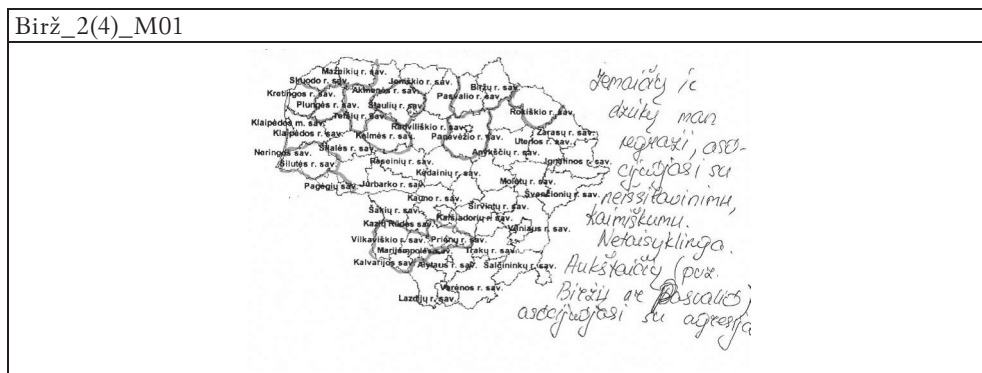 Birž_2(4)_M01
Mažeikių r. sav.
Skuodo r. sav.
Joniškio r. sav.
Akmenės r. sav.
Biržų r. sav.
Kretingos r. sav.
Pasvalio r. sav.
Plungės r. sav.
Šiaulių r. sav.
Rokiškio r. sav.
Telšių r. sav.
Klaipėdos m. sav.
Radviliškio r. sav.
Klaipėdos r. sav.
Kelmės r. sav.
Panevėžio r. sav.
Zarasų r. sav.
Utenos r. sav.
Neringos sav.
Šilalės r. sav.
Anykščių r. sav.
Šilutės r. sav.
Raseinių r. sav.
Ignalinos r. sav.
Kėdainių r. sav.
Pagėgių sav.
Jurbarko r. sav.
Molėtų r. sav.
Švenčionių r. sav.
Kauno r. sav.
Širvintų r. sav.
Šakių r. sav.
Kaišiadorių r. sav.
Kazlų Rūdos sav.
Vilniaus r. sav.
Vilkaviškio r. sav.
Prienų r. sav.
Marijampolės sav.
Trakų r. sav.
Kalvarijos sav.
Alytaus r. sav.
Šalčininkų r. sav.
Varėnos r. sav.
Lazdijų r. sav.
Žemaičių ir
dzūkų man
negraži, aso-
cijuojasi su
neišsilavinimu,
kaimiškumu.
Netaisyklinga.
Aukštaičių (pvz.
Biržų ar Pasvalio)
asocijuojasi su agresija